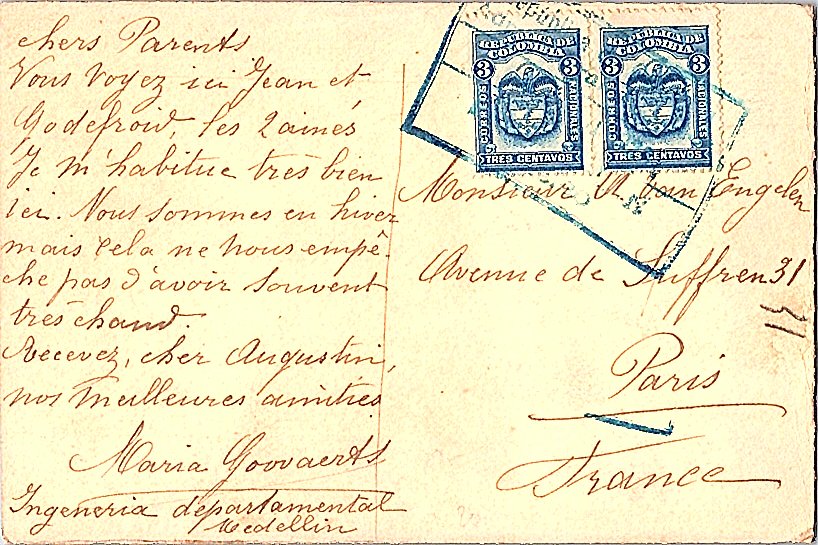 chers Parents
Vous voyez ici Jean et
Godefroid, les 2 ainés
Je m'habitue très bien
ici. Nous sommes en hiver
mais cela ne nous empê-
che pas d'avoir souvent
très chaud.
Recevez, cher Augustin,
nos meilleures amitiés
Maria Goovaerts
Ingeneria departamental
Medellin
REPUBLICA DE
COLOMBIA
3 3
CORREOS NACIONALES
TRES CENTAVOS
REPUBLICA DE
COLOMBIA
3 3
CORREOS NACIONALES
TRES CENTAVOS
Monsieur A. Van Engelen
Avenue de Suffren 31
31
Paris
France